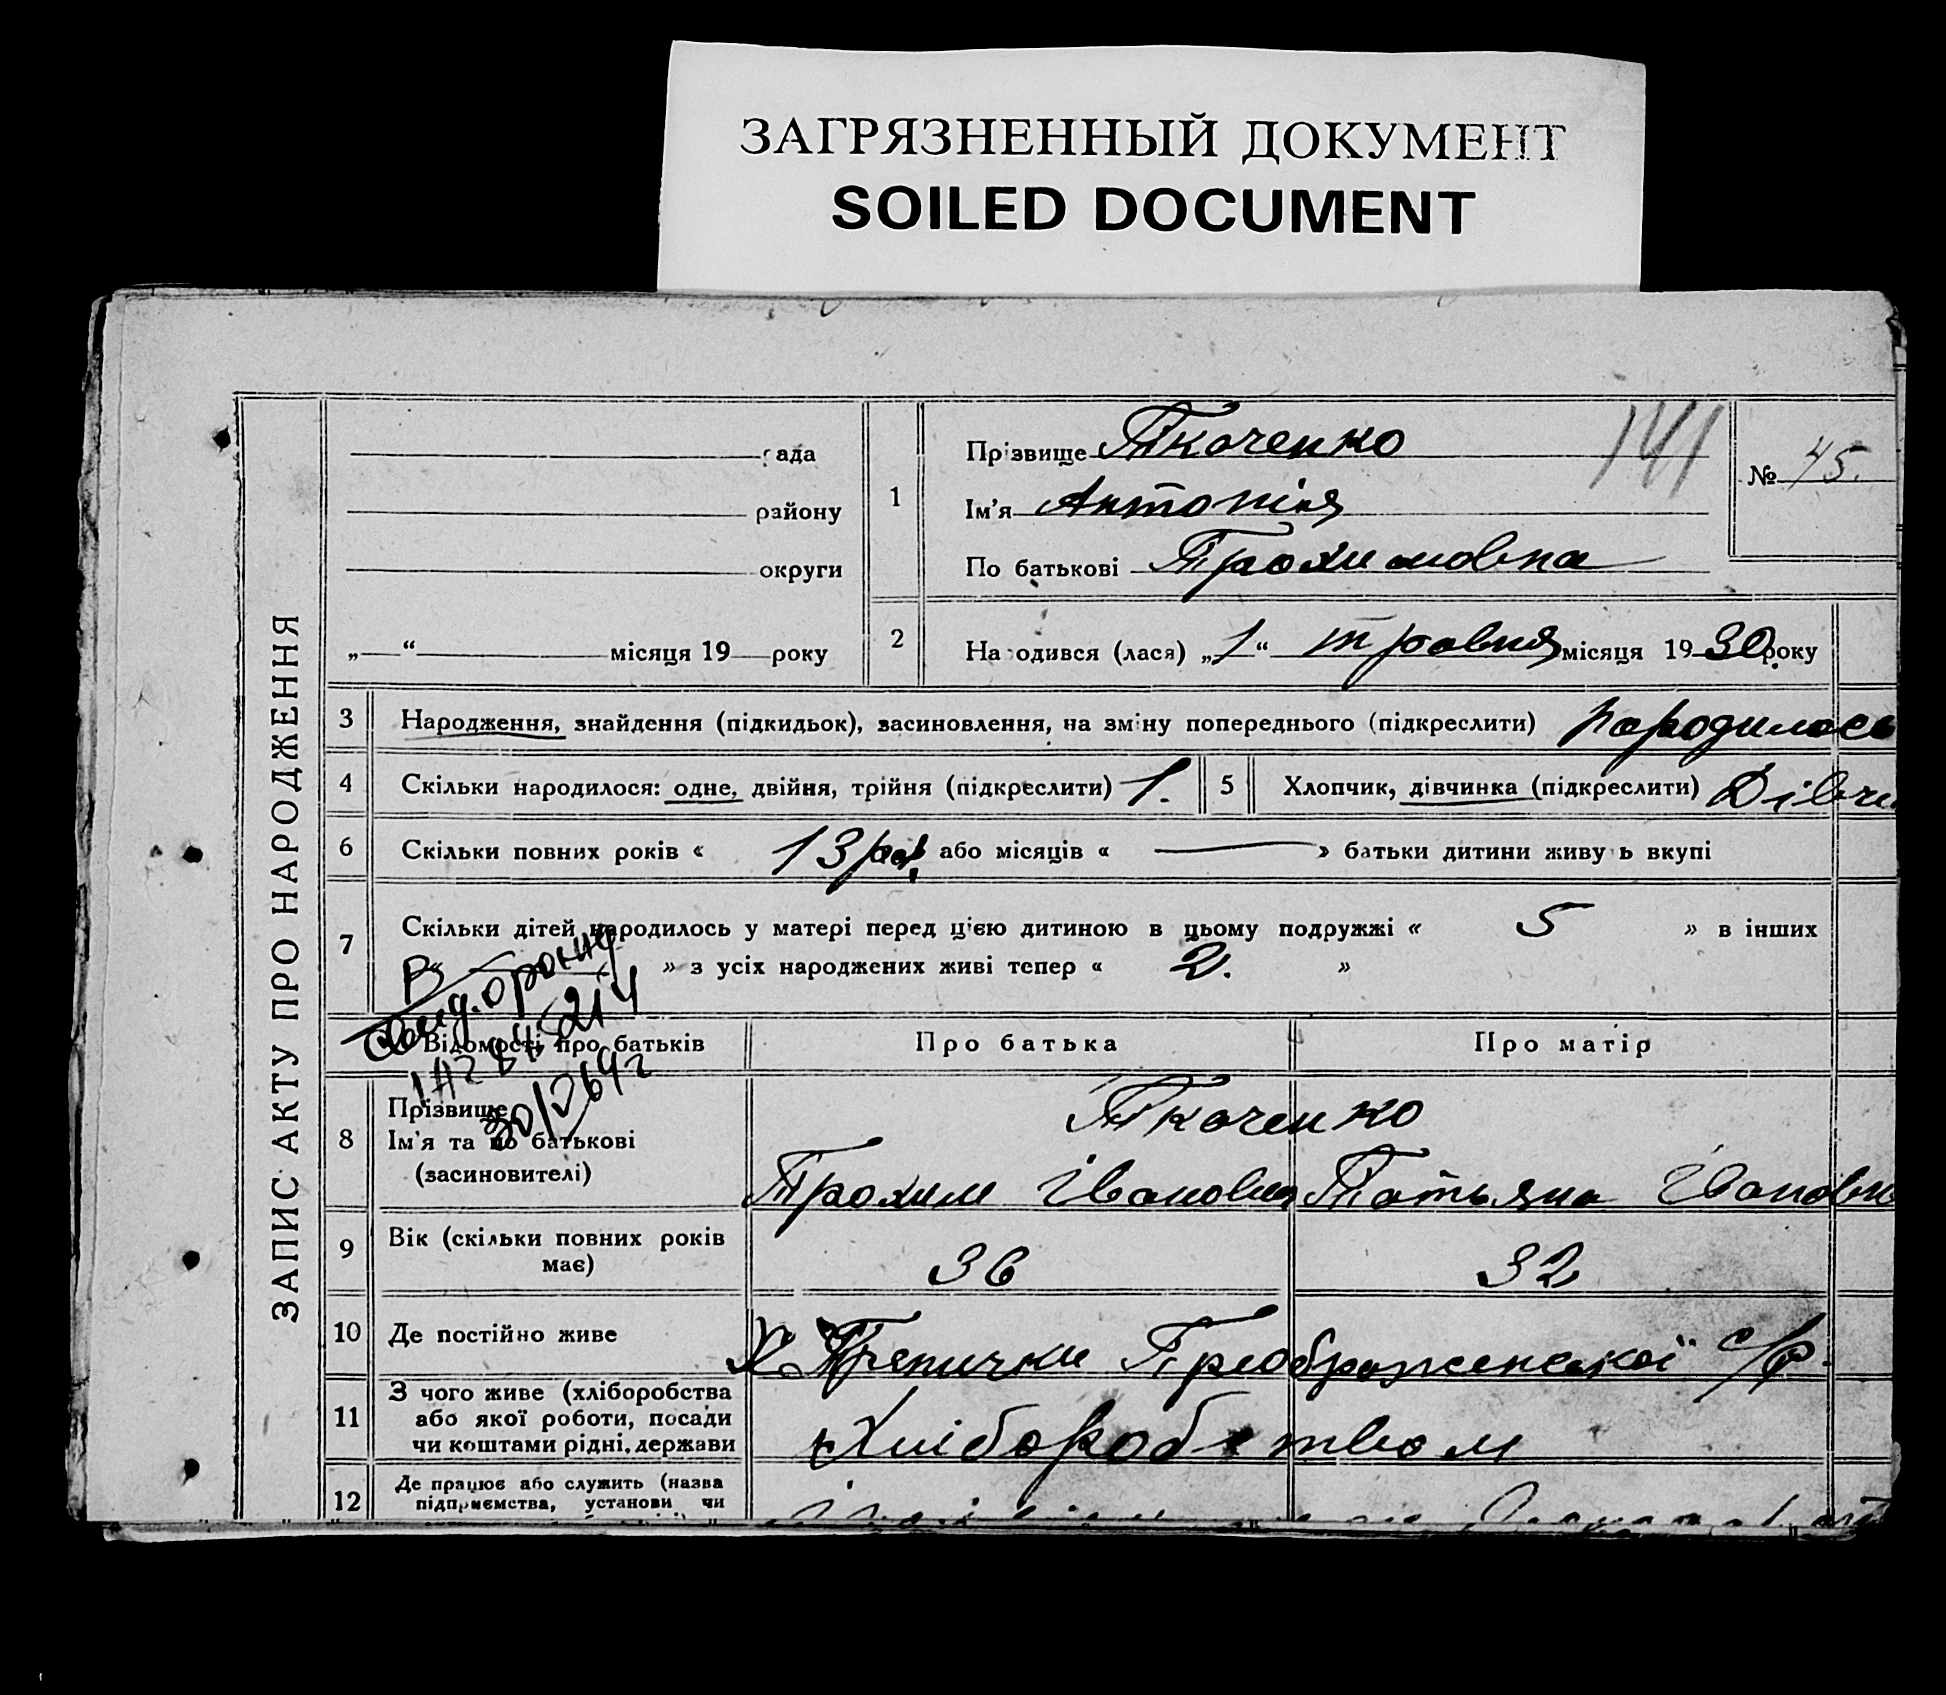 ЗАГРЯЗНЕННЫЙ ДОКУМЕНТ
SOILED DOCUMENT
ЗАПИС АКТУ ПРО НАРОДЖЕННЯ
рада
району
округи
„ “ місяця 19 року
1
Прізвище Ткаченко
Ім'я Антонія
По батькові Трохимовна
141
№ 45.
2 Народився (лася) „1“ травня місяця 1930 року
3 Народження, знайдення (підкидьок), засиновлення, на зміну попереднього (підкреслити) народилось
4 Скільки народилося: одне, двійня, трійня (підкреслити) 1.
5 Хлопчик, дівчинка (підкреслити) Дівчи
6 Скільки повних років « 13 рок. або місяців « » батьки дитини живуть вкупі
7 Скільки дітей народилось у матері перед цією дитиною в цьому подружжі « 5 » в інших
« » з усіх народжених живі тепер « 2. »
Відомості про батьків
Про батька
Про матір
8
Прізвище
Ім'я та по батькові
(засиновителі)
Ткаченко
Трохим Іванович
Татьяна Івановн
9 Вік (скільки повних років
має)
36
32
10 Де постійно живе
Х. Преображенської с/р.
11 З чого живе (хліборобства
або якої роботи, посади
чи коштами рідні, держави
Хліборобством
12 Де працює або служить (назва
підприємства, установи чи